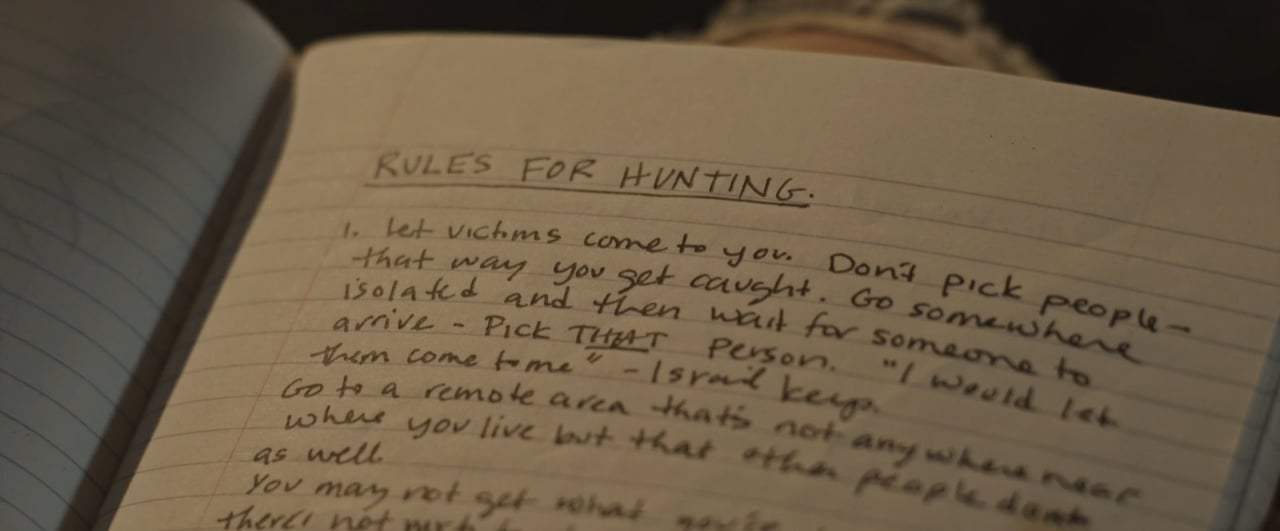 RULES FOR HUNTING.
1. Let victims come to you. Don't pick people -
that way you get caught. Go somewhere
isolated and then wait for someone to
arrive - Pick THAT person. "I would let
them come to me" - Israil keys.
Go to a remote area that's not anywhere near
where you live but that other people
as well.
You may not get what you're
there's not much